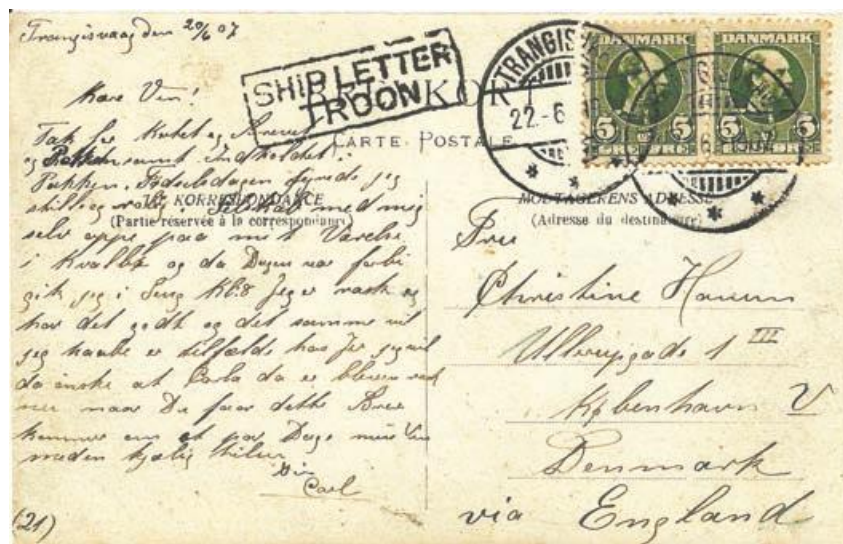 Trangisvaag den 20/6 07
Kære Ven!
Tak for Kortet og Brevet
og Pakken samt Indholdet i
Pakken, Fødselsdagen fejrede jeg
stille og rolig Selskab med mig
selv oppe paa mit Værelse
i Kvalbø og da Dagen var forbi
gik jeg i Seng Kl: 8 Jeg er rask og
har det godt og det samme vil
jeg haabe er tilfælde hos Jer jeg vil
da ønske at Carla da er bleven rask
naar Du faar dette Brev
kommer om et par Dage
meden kjælig Hilsen
Din
Carl
(21)
SHIP LETTER
TROON
BREVKORT
CARTE POSTALE
TIL KORRESPONDANCE
(Partie réservée à la correspondance)
TRANGISVAAG
22.-6
DANMARK
5 5
ØRE
DANMARK
5 5
ØRE
MODTAGERENS ADRESSE
(Adresse du destinataire)
Frue
Christine Hansen
Ullerupgade 1 III
København V
Denmark
via England